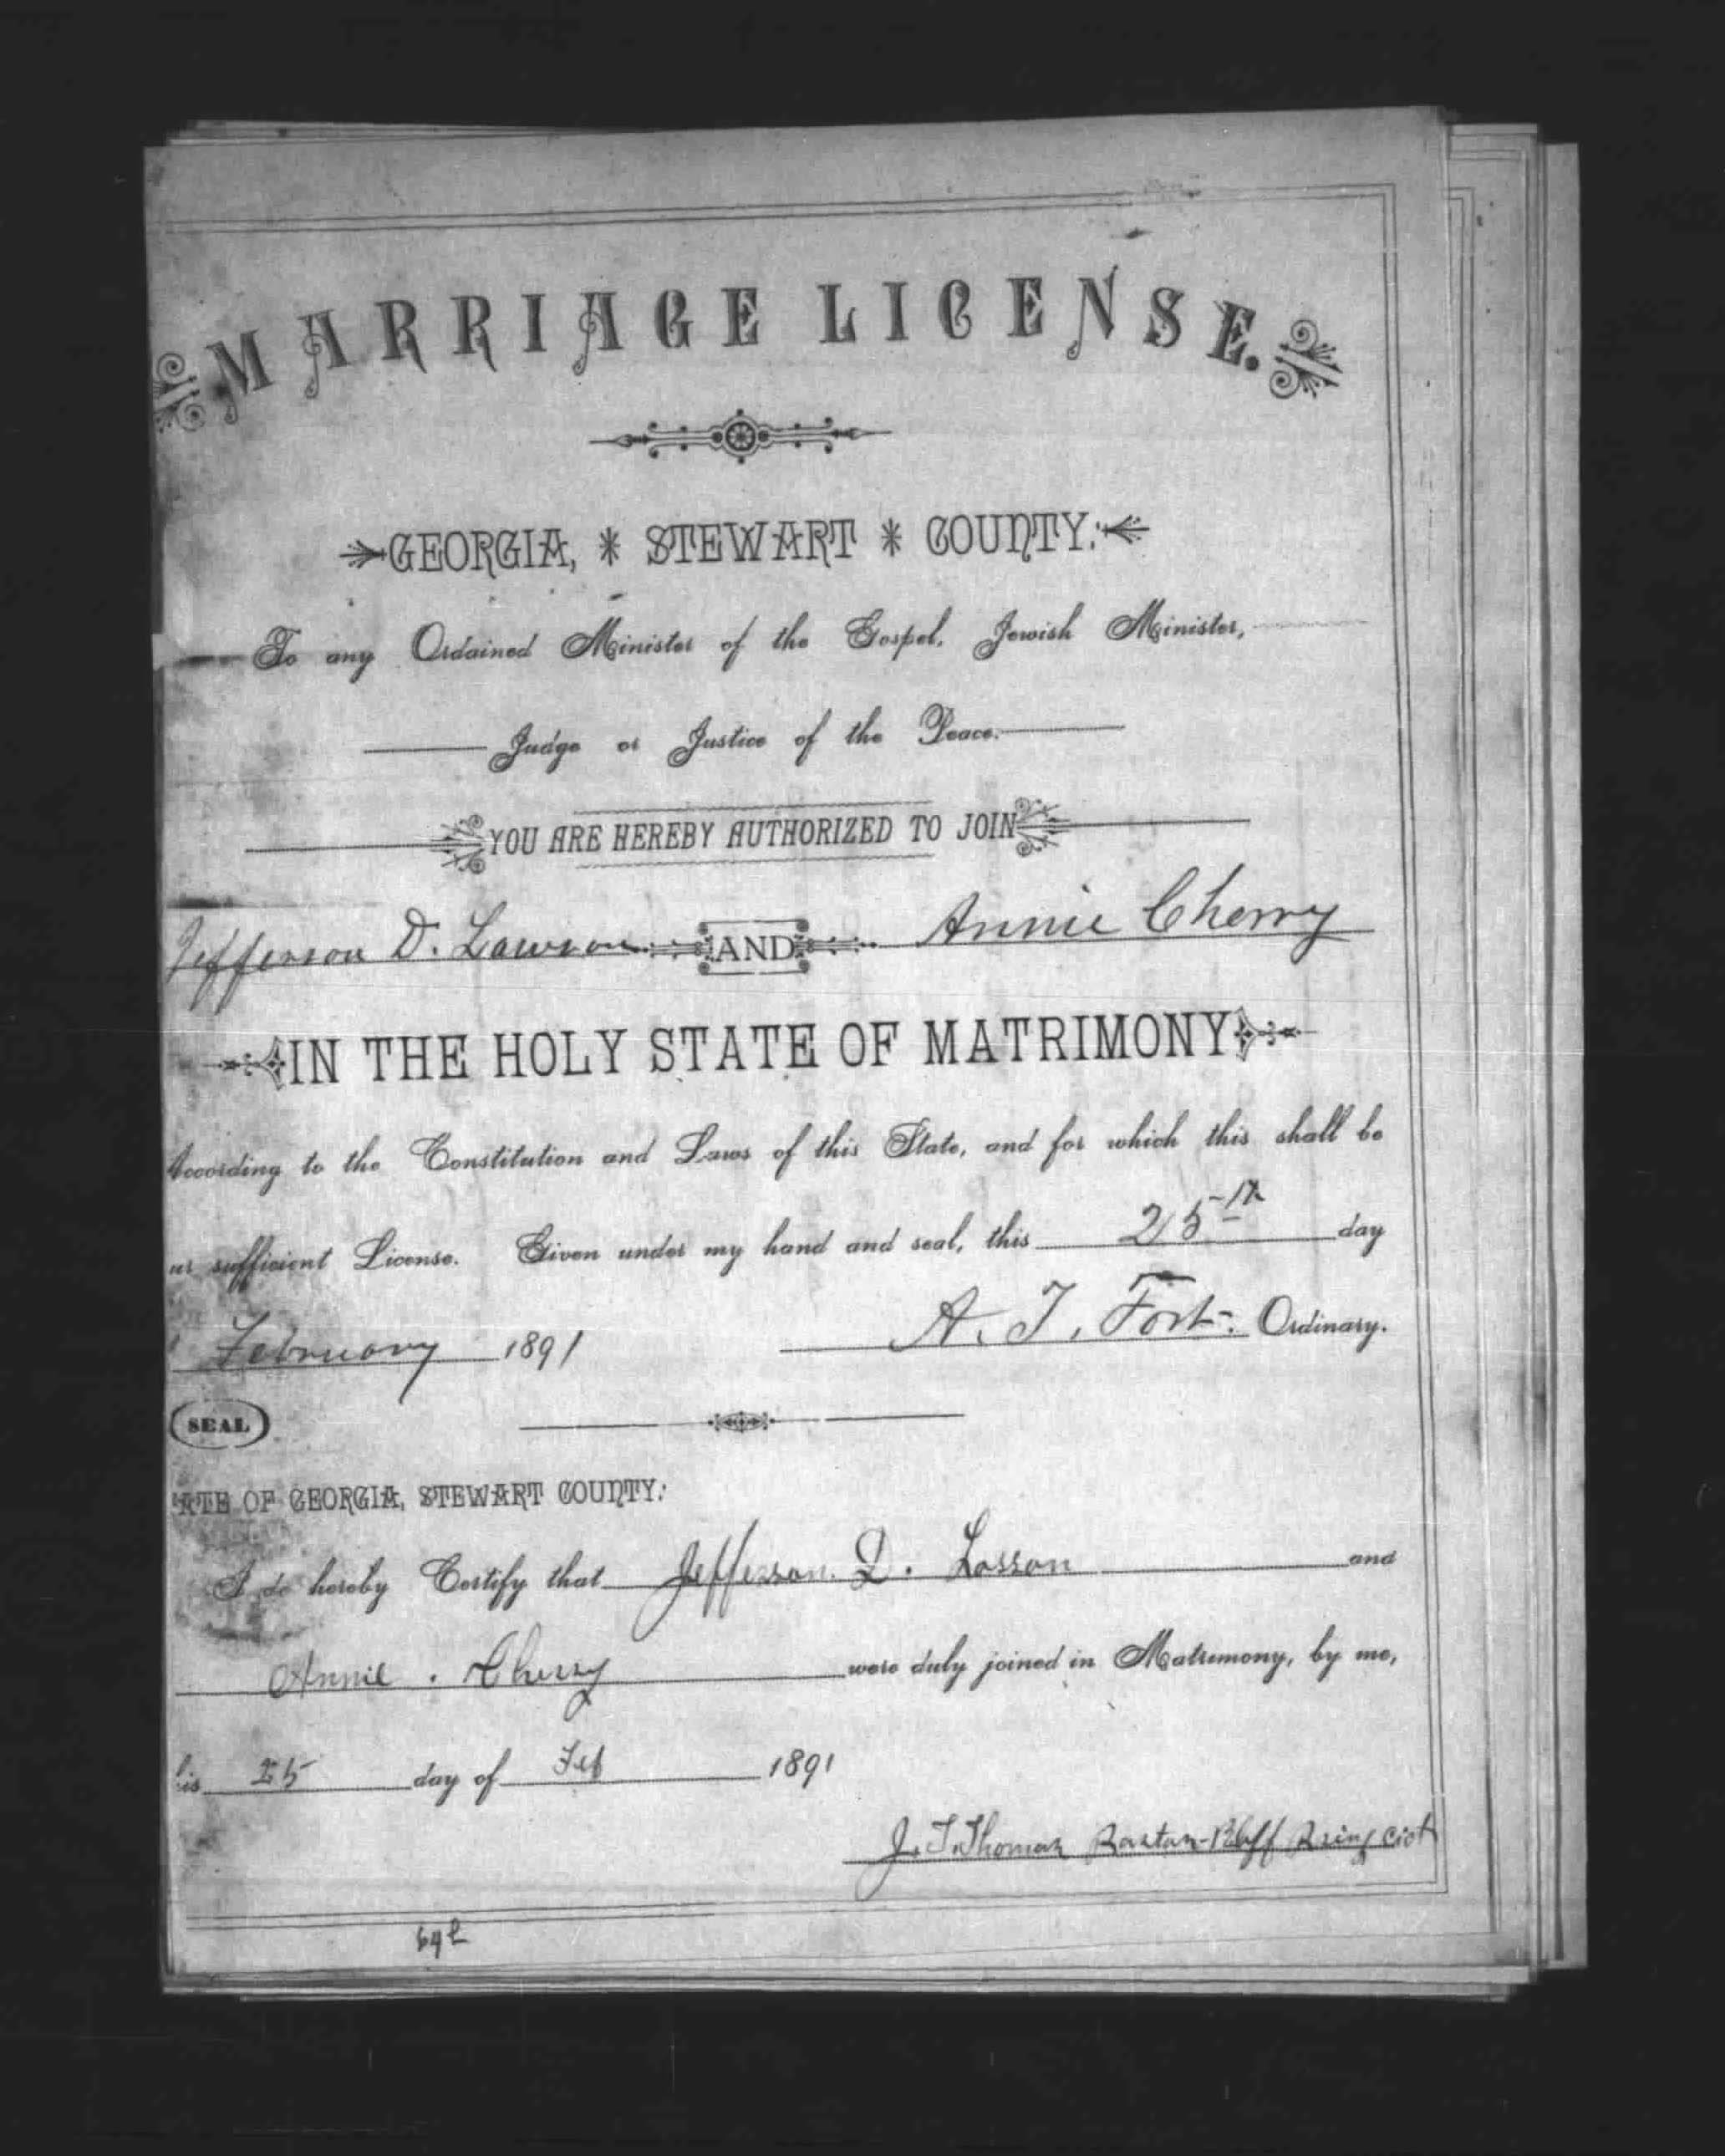 MARRIAGE LICENSE.
GEORGIA, * STEWART * COUNTY:
To any Ordained Minister of the Gospel, Jewish Minister,
Judge or Justice of the Peace.
YOU ARE HEREBY AUTHORIZED TO JOIN
Jefferson D. Lawson AND Annie Cherry
IN THE HOLY STATE OF MATRIMONY
According to the Constitution and Laws of this State, and for which this shall be
ur sufficient License. Given under my hand and seal, this 25th day
February 1891 A. T. Fort. Ordinary.
SEAL
ATE OF GEORGIA, STEWART COUNTY:
I do hereby Certify that Jefferson. D. Losson and
Annie . Cherry were duly joined in Matrimony, by me,
his 25 day of Feb 1891
J. T. Thomas